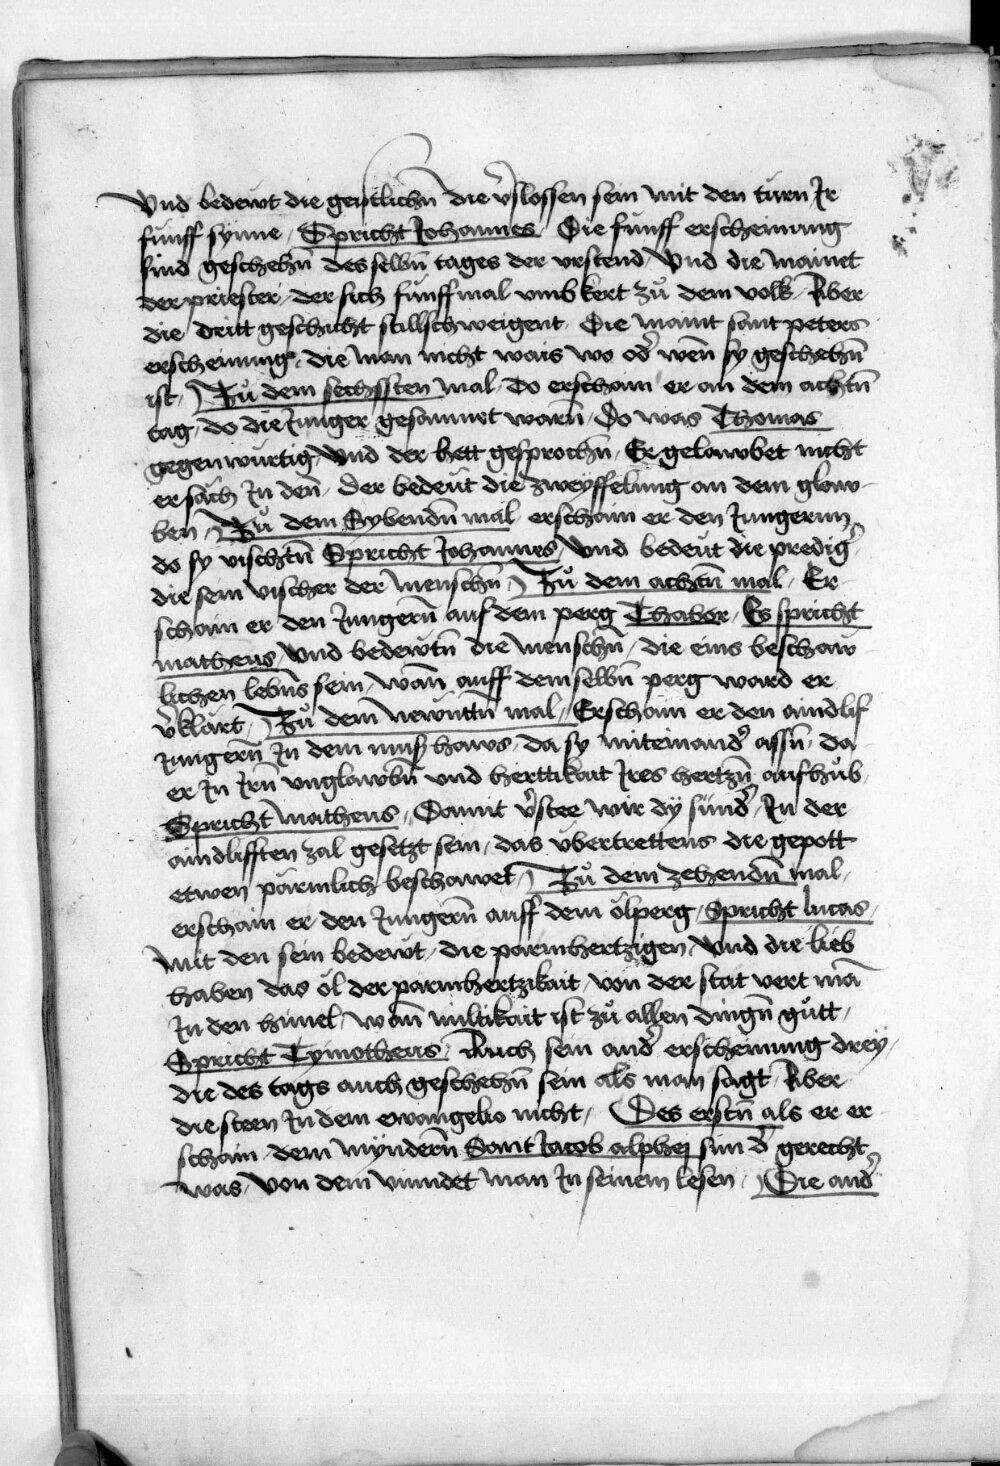 Vnd bedewt die geistlichn̄ die v̓slossen sein mit den türn Jr
fünff synne / Spricht Johannes Die fünff erscheinung
sind geschehn̄ desselbn̄ tages der vrstend / Vnd die mainet
der priester / der sich fünffmal vmbkert zů dem volk / Aber
die dritt geschicht stillschweigent / Die maint sant peters
erscheinung / die man nicht wais wo od̓ wen̄ sy geschehn̄
ist / Zů dem sechssten mal / do erschain er an dem achtn̄
tag / do die Junger gesamnet warn̄ / Do was Thomas
gegenwürtig / Vnd der hett gesprochn̄ / Er gelawbet nicht
er säch Jn den̄ / Der bedeut die zweyffelung an dem glaw
ben / Zů dem Sybendn̄ mal erschain er den Jungernn
do sy vischtn̄ Spricht Johannes / Vnd bedeüt die predig̓
die sein vischer der menschn̄ / Zů dem achtn̄ mal / Er
schain er den Jungern̄ auf dem perg Thabor / Es spricht
matheus / Vnd bedewtn̄ die menschn̄ / die eins beschaw
lichen lebn̄s sein / wan̄ auff demselbn̄ perg ward er
v̓klärt / Zů dem newüntn̄ mal / Erschain er den aindlif
Jungern̄ Jn dem mußhaws / da sy miteinand̓ assn̄ / da
er Jn Jrn̄ vnglawbn̄ vnd herttikait Jres hertzn̄ aufhůb
Spricht matheus / Damit v̓stee wir dÿ sünd̓ / Jn der
aindlifften zal gesetzt sein / das übertrettens die gepott
etwen pärmlich beschawet / Zů dem zehendn̄ mal /
erschain er den Jungern̄ auff dem ölperg / Spricht lucas /
Mit den sein bedewt / die parmhertzigen / Vnd die lieb
haben das öl der parmhertzikait / Von der stat vert mā
Jn den himel / wan̄ miltikait ist zů allen dingn̄ gůtt /
Spricht Tymotheus / Auch sein and̓ erscheinung dreÿ /
die des tags auch geschehn̄ sein als man sagt / Aber
die steen Jn dem ewangelio nicht / Des erstn̄ als er er
schain / dem mÿndern̄ Sant Jacob alphej sun d̓ gerecht
was / Von dem vindet man Jn seinem lesen / Die and̓